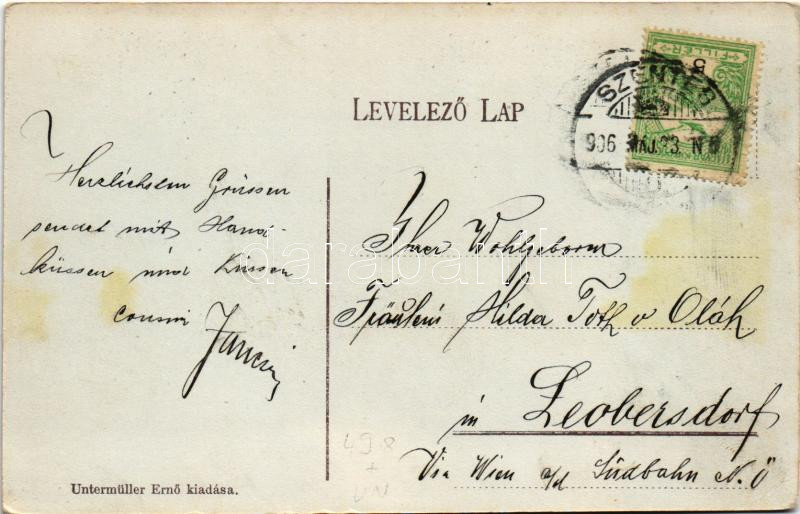 LEVELEZŐ LAP
FILLÉR
5
SZENTES
906 MÁJ. 23. N
Herzlichsem Grüssen
sendet mit Hand-
küssen und Küssen
cousin
Jancsi
Ihrer Wohlgeborn
Fräulein Hilda Toth v Oláh
in Leobersdorf
Via Wien a/d Südbahn N.Ö
498
+
Untermüller Ernő kiadása.
darabanth